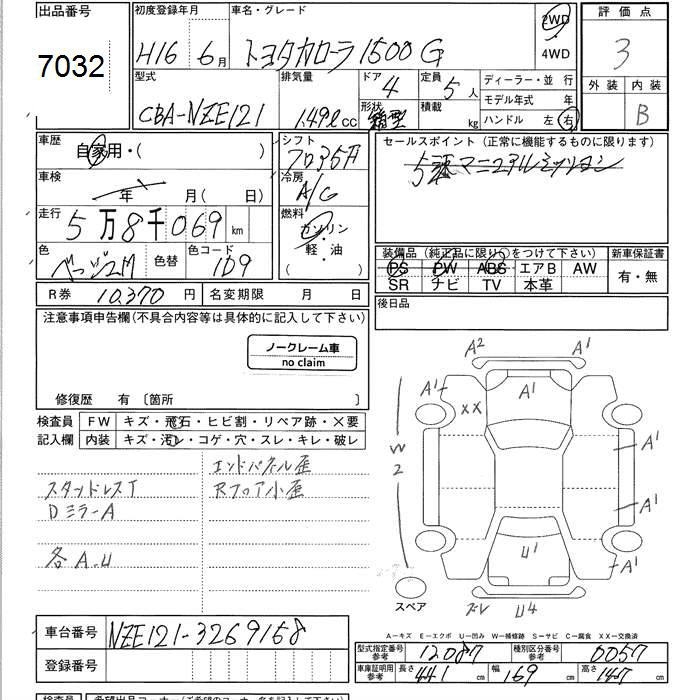 出品番号
7032
初度登録年月
H16 6月
車名・グレード
トヨタカローラ 1500 G
2WD
・
4WD
評価点
3
型式
CBA-NZE121
排気量
1.49ℓ cc
ドア
4
形状
箱型
定員
5 人
積載
kg
ディーラー・並 行
モデル年式 年
ハンドル 左 右
外装 内装
B
車歴
自家用・( )
シフト
フロア5F
セールスポイント (正常に機能するものに限ります)
5速マニュアルミッション
車検
年 月(日)
冷房
A/C
走行
5万8千069 km
燃料
ガソリン
・
軽・油
( )
色
ベージュM
色替
色コード
1D9
装備品 (純正品に限り○をつけて下さい)
PS PW ABS エアB AW
SR ナビ TV 本革
新車保証書
有・無
R券 10,370 円
名変期限 月 日
後日品
注意事項申告欄(不具合内容等は具体的に記入して下さい)
ノークレーム車
no claim
修復歴 有 〔箇所 〕
検査員
記入欄
FW キズ・飛石・ヒビ割・リペア跡・×要
内装 キズ・汚レ・コゲ・穴・スレ・キレ・破レ
エンドパネル歪
Rフロア小歪
DミラーA
各A.U
A2
A1
A1
XX
A1
W
2
A1
A1
U1
A1
スペア
U4
A-キズ E-エクボ U-凹み W-補修跡 S-サビ C-腐食 XX-交換済
車台番号 NZE121-3269168
登録番号
型式指定番号
参考
12087
種別区分番号
参考
0057
車庫証明用
参考
長さ 441 cm
幅 169 cm
高さ cm